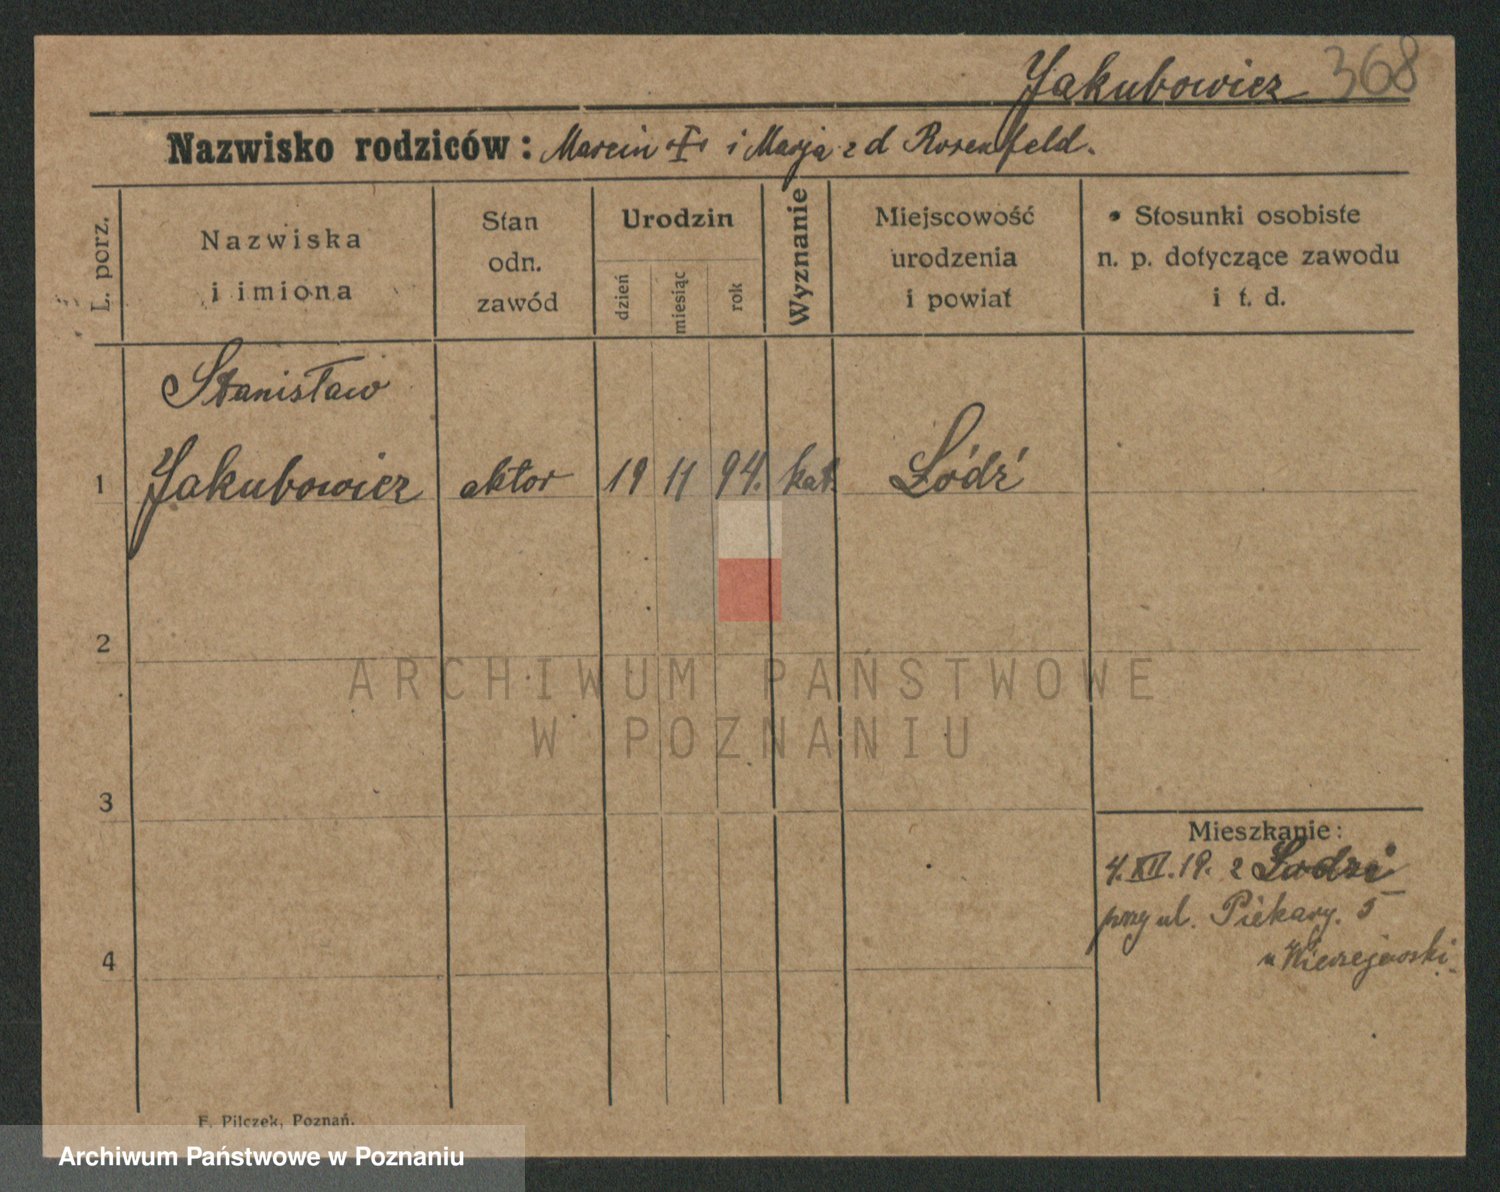 Jakubowicz 368
Nazwisko rodziców: Marcin + i Marja z d Rosenfeld.
L. porz.
Nazwiska
i imiona
Stan
odn.
zawód
Urodzin
dzień
miesiąc
rok
Wyznanie
Miejscowość
urodzenia
i powiat
Stosunki osobiste
n. p. dotyczące zawodu
i t. d.
Stanisław
1 Jakubowicz aktor 19 11 94. kat. Łódź
2
ARCHIWUM PAŃSTWOWE
W POZNANIU
3
Mieszkanie:
4. XII. 19. z Łodzi
przy ul. Piekary. 5
u
4
F. Pilczek, Poznań.
Archiwum Państwowe w Poznaniu